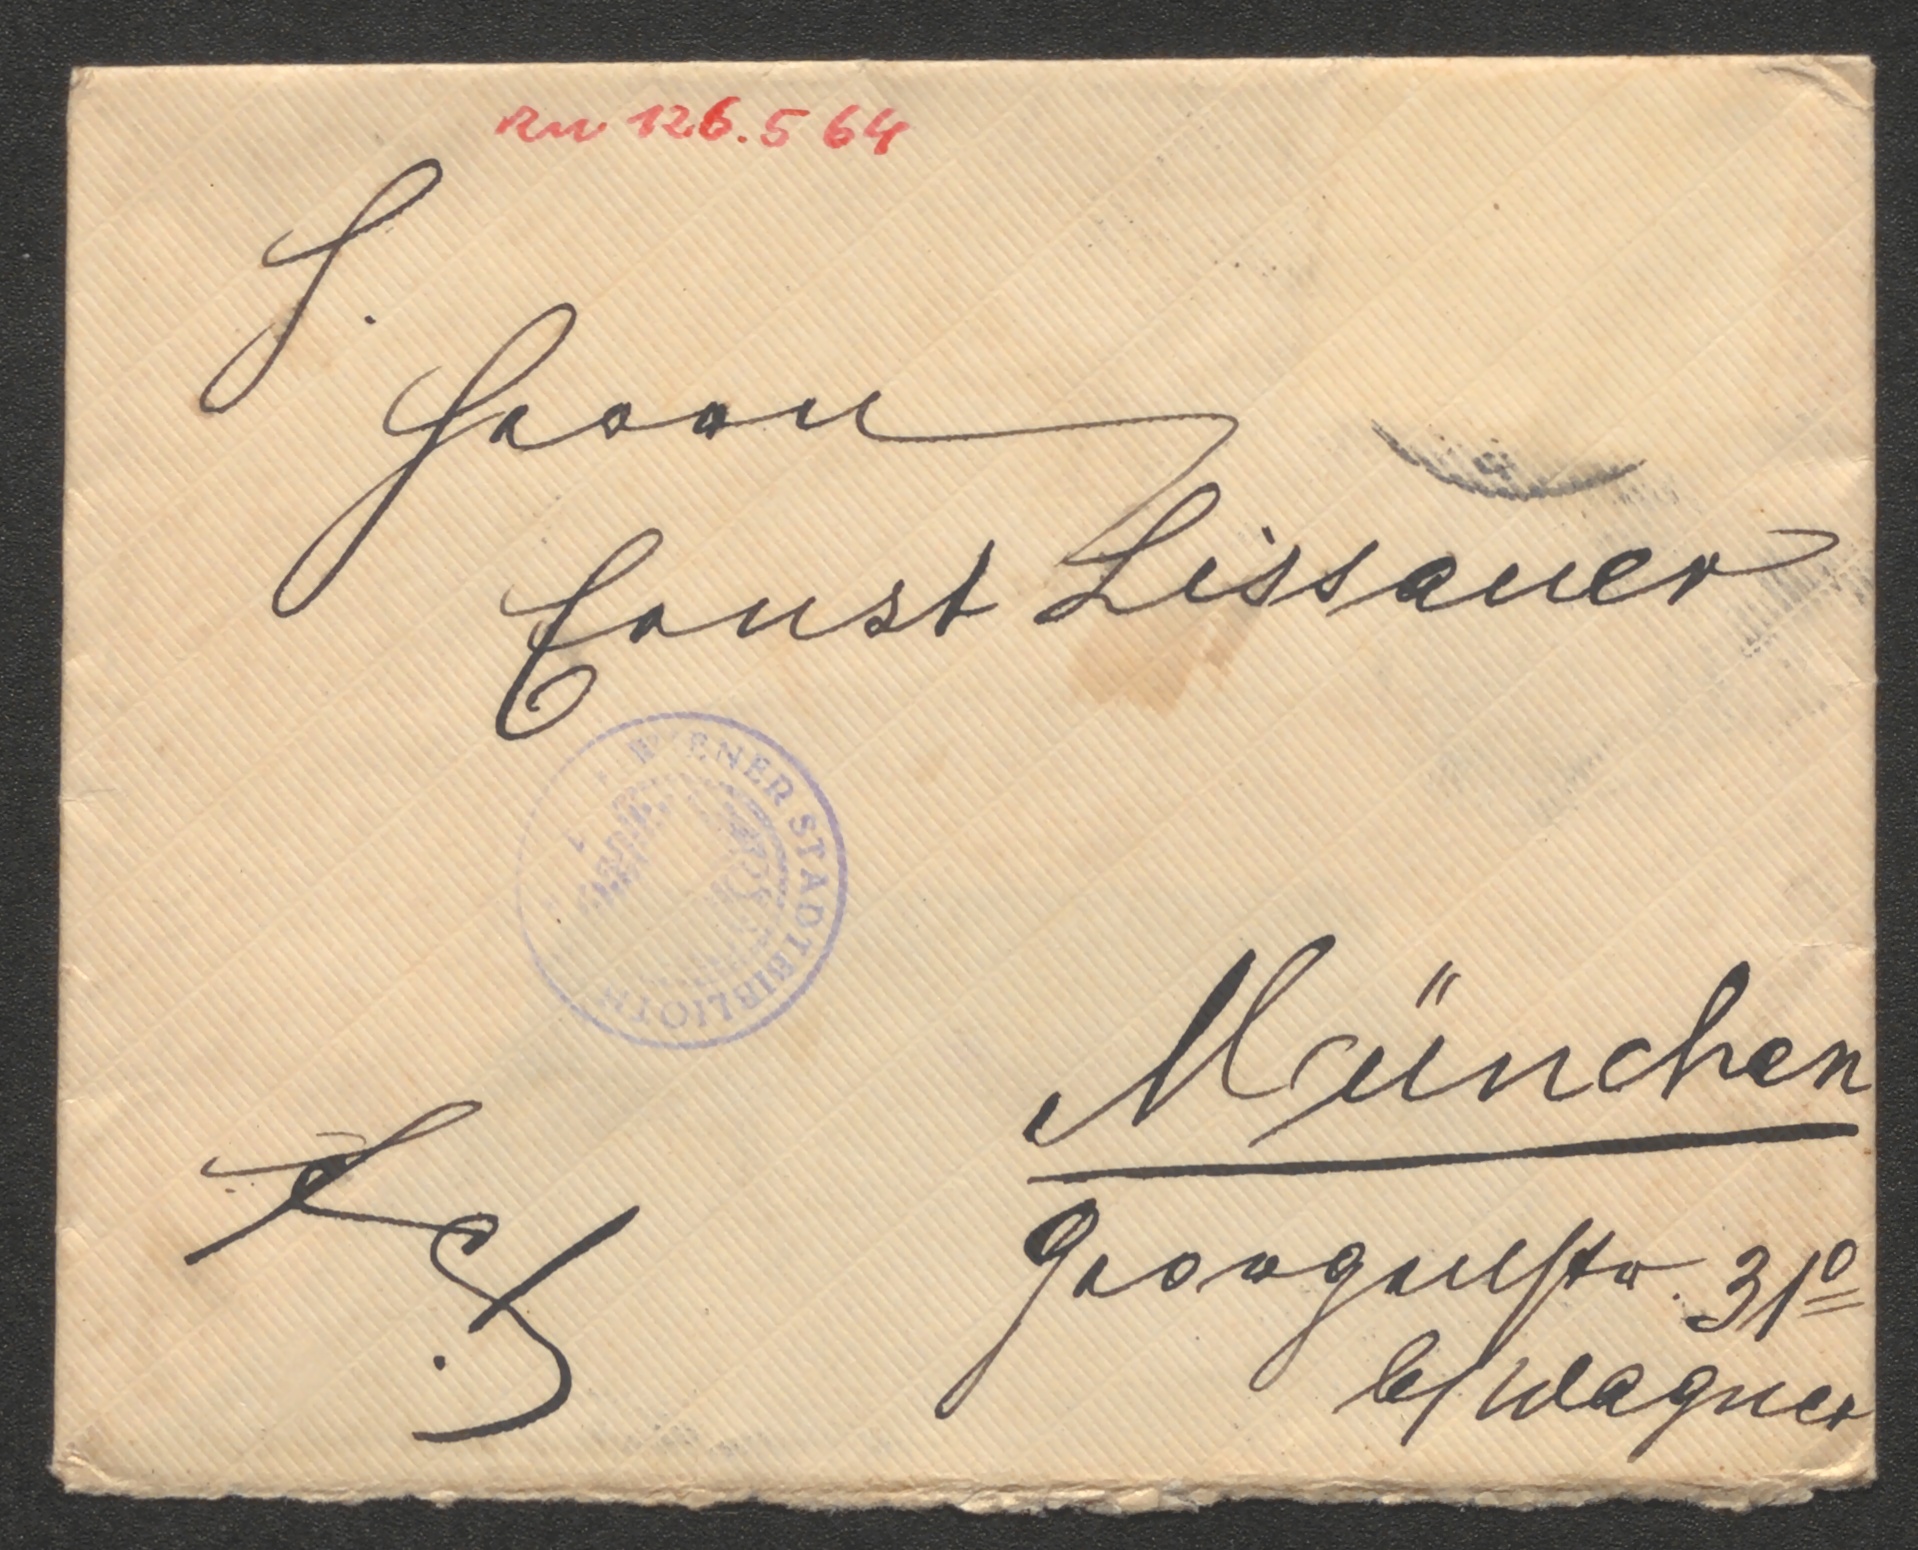 ZN 126.564
H.
Herrn
Ernst Lissauer
WIENER STADTBIBLIOTH
München
Georgenstr. 31⁰
b/Wagner